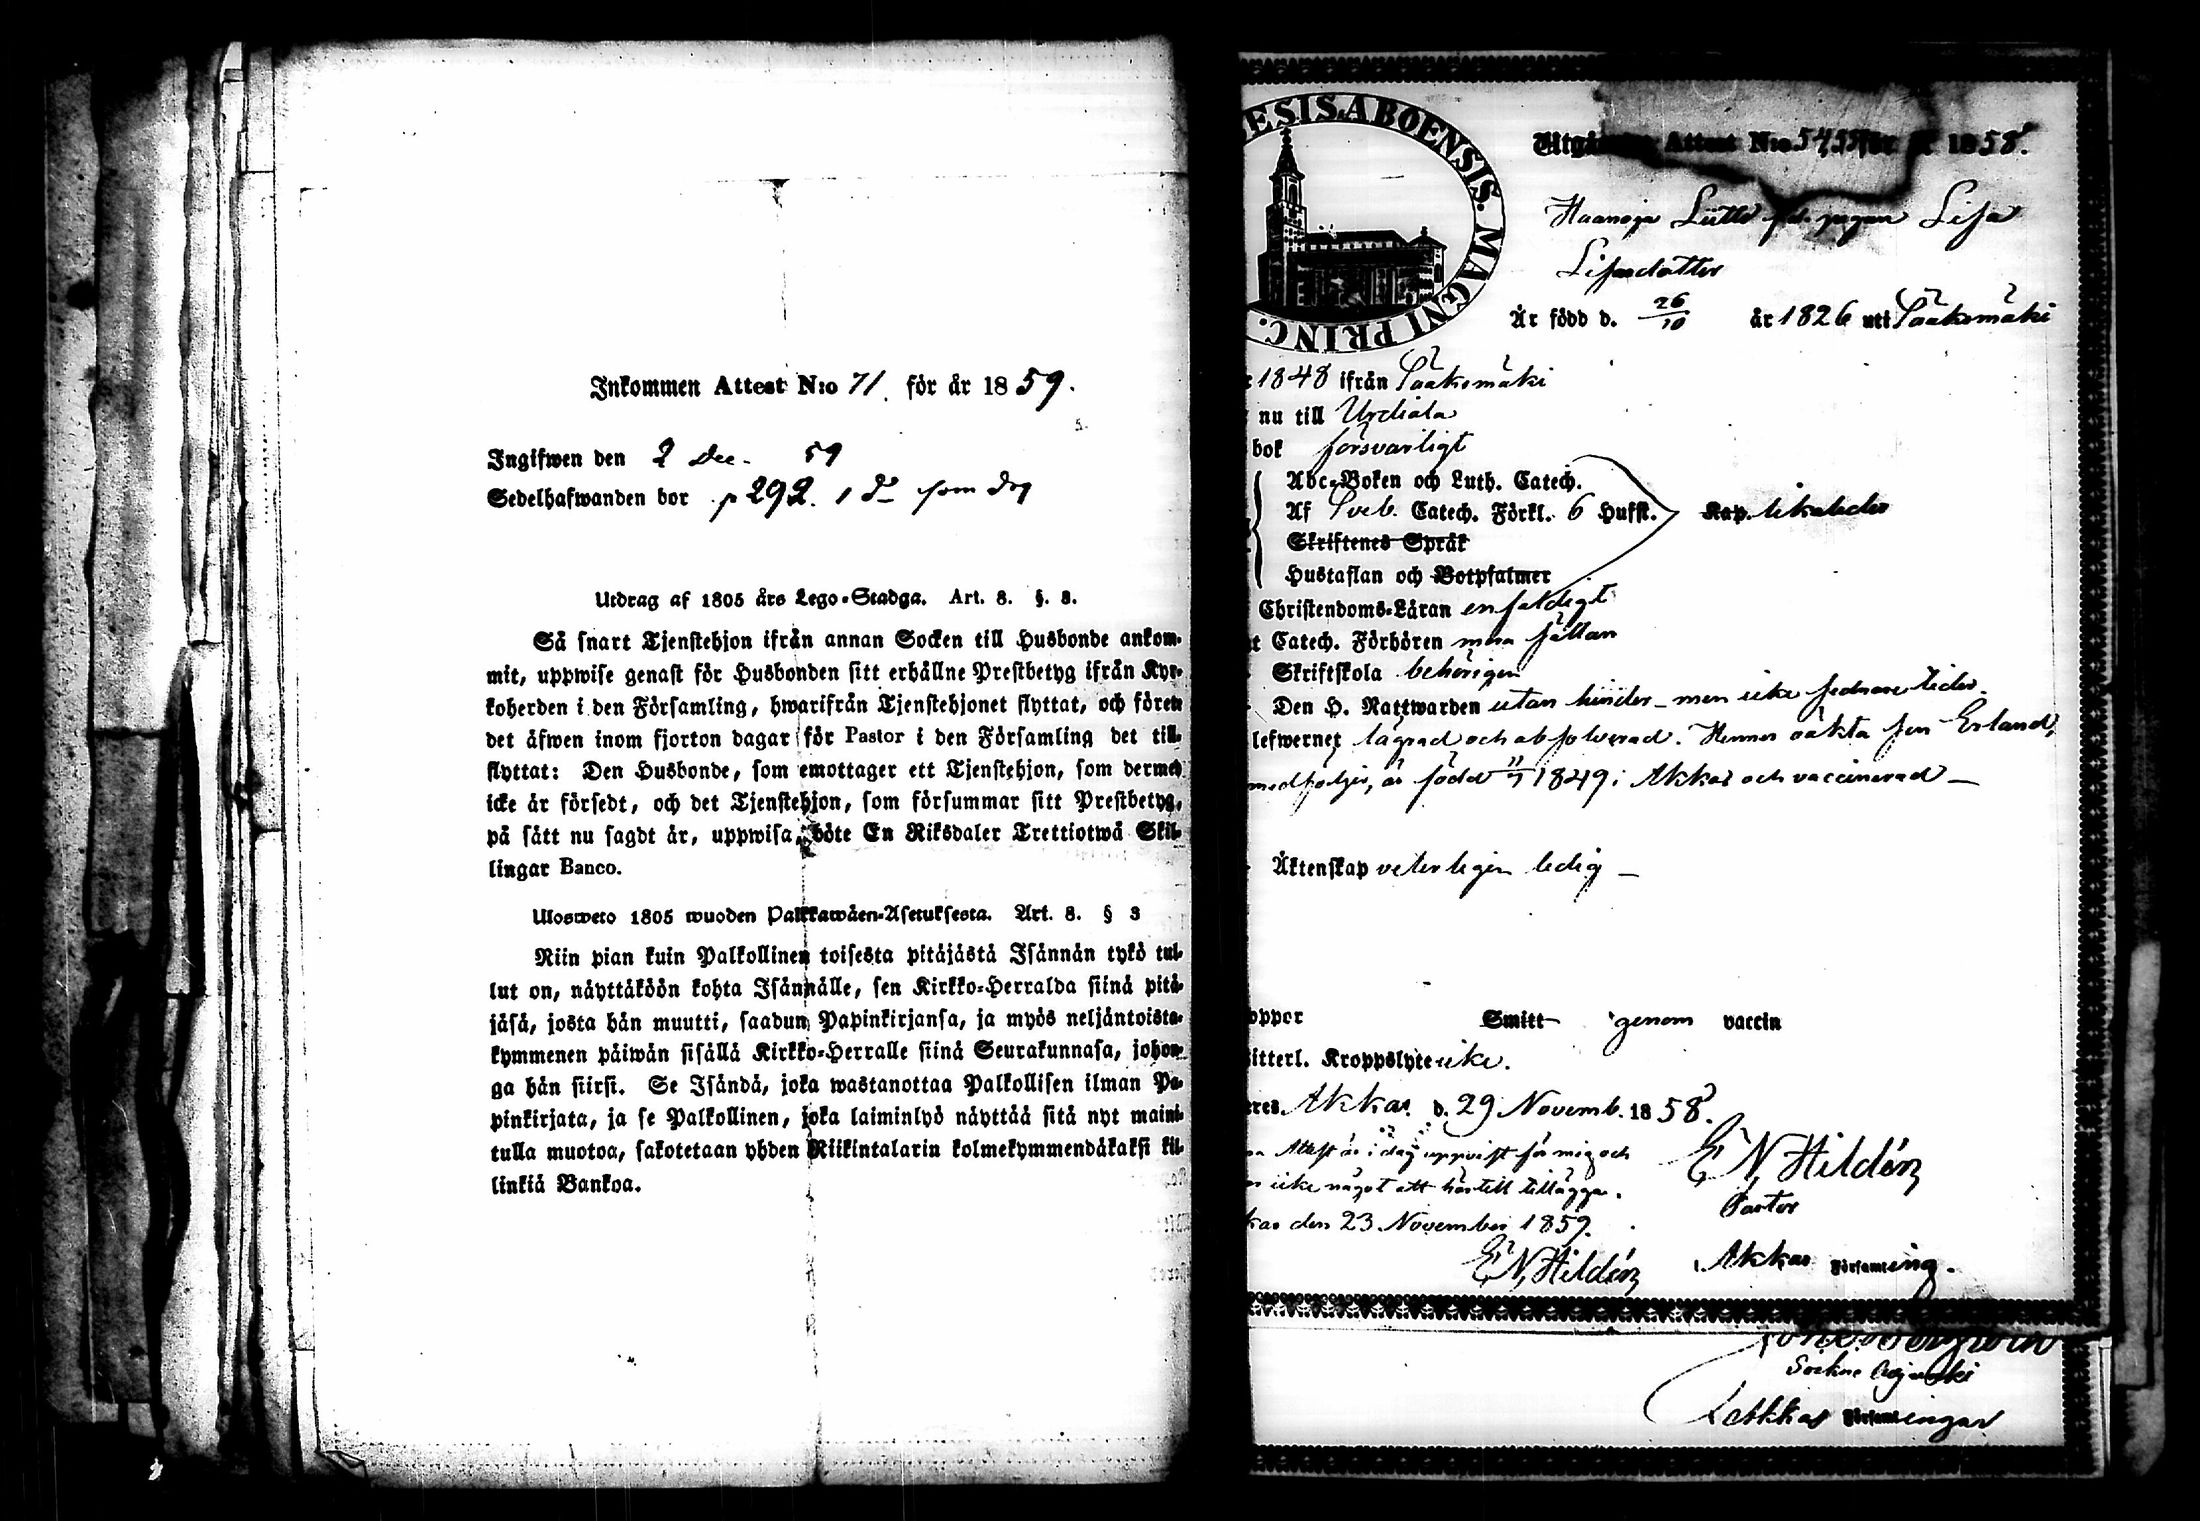 Inkommen Attest N:o 71. för år 1859.
Ingifwen den 2 Dec. 59
Sedelhafwanden bor p 292.
Utdrag af 1805 års Lego-Stadga. Art. 8. §. 3.
Så snart Tjenstehjon ifrån annan Socken till Husbonde ankom-
mit, uppwise genast för Husbonden sitt erhållne Prestbetyg ifrån Kyr-
koherden i den Församling, hwarifrån Tjenstehjonet flyttat, och förete
det äfwen inom fjorton dagar för Pastor i den Församling det till-
flyttat: Den Husbonde, som emottager ett Tjenstehjon, som dermed
icke är försedt, och det Tjenstehjon, som försummar sitt Prestbetyg,
på sätt nu sagdt är, uppwisa, böte En Riksdaler Trettiotwå Skil-
lingar Banco.
Ulosweto 1805 wuoden Palkkawäen-Asetuksesta. Art. 8. § 3
Niin pian kuin Palkollinen toisesta pitäjästä Isännän tykö tul-
lut on, näyttäköön kohta Isännälle, sen Kirkko-Herralda siinä pitä-
jäsä, josta hän muutti, saadun Papinkirjansa, ja myös neljäntoista-
kymmenen päiwän sisällä Kirkko-Herralle siinä Seurakunnasa, johon-
ga hän siirsi. Se Isändä, joka wastanottaa Palkollisen ilman Pa-
pinkirjata, ja se Palkollinen, joka laiminlyö näyttää sitä nyt maini-
tulla muotoa, sakotetaan yhden Riikintalarin kolmekymmendäkaksi kil-
linkiä Bankoa.
ESIS.ABOENSIS.MAGNI PRINC.
Attest N:o 1858.
Lisa
Lisasdotter
Är född d. 26/10 år 1826 uti Sääksmäki
1848 ifrån Sääksmäki
nu till Urdiala
bok försvarligt
Abc-Boken och Luth. Catech.
Af Sveb. Catech. Förkl. 6 Hufst. Kap. likaledes
Skriftenes Språk
Hustaflan och Botpsalmer
Christendoms-Läran enfaldigt
Catech. Förhören men sällan
Skriftskola behörigen
Den H. Nattwarden utan hinder - men icke sednare tider.
lefwernet lagrad och absolverad. Hennes oäkta son Erland,
medföljer, är född 11/7 1849 i Akkas och vaccinerad -
Äktenskap veterligen ledig -
oppor Smitt genom vaccin
itterl. Kroppslyte icke.
Akkas d. 29 Novemb. 1858.
Attest är i dag uppvist för mig och
icke något att härtill tillägga.
kas den 23 November 1859.
E N Hildén
Pastor
E N Hildén
i Akkas Församling.
Församlingar